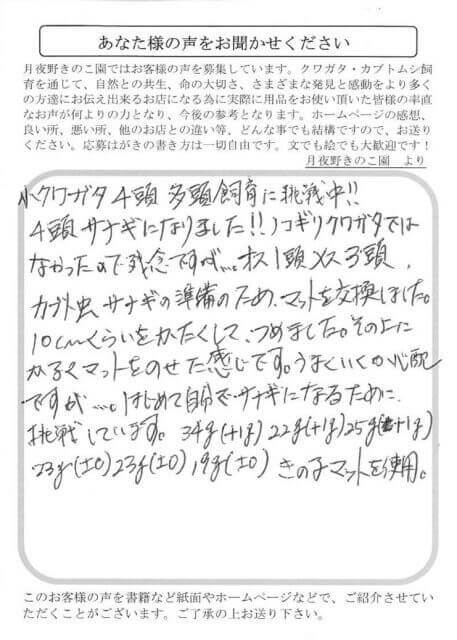 あなた様の声をお聞かせください
月夜野きのこ園ではお客様の声を募集しています。クワガタ・カブトムシ飼
育を通じて、自然との共生、命の大切さ、さまざまな発見と感動をより多く
の方達にお伝え出来るお店になる為に実際に用品をお使い頂いた皆様の率直
なお声が何よりの力となり、今後の参考となります。ホームページの感想、
良い所、悪い所、他のお店との違い等、どんな事でも結構ですので、お送り
ください。応募はがきの書き方は一切自由です。文でも絵でも大歓迎です！
月夜野きのこ園　より
小クワガタ 4頭 多頭飼育に挑戦中!!
4頭 サナギになりました!! ノコギリクワガタでは
なかったので残念ですが…。オス1頭メス3頭。
カブト虫 サナギの準備のため、マットを交換しました。
10cmくらいをかたくして、つめました。その上に
かるくマットをのせた感じです。うまくいくか心配
ですが…。はじめて自分でサナギになるために
挑戦しています。 34g(+1g) 22g(+1g) 25g(+1g)
23g(±0) 23g(±0) 19g(±0) きのこマットを使用。
このお客様の声を書籍など紙面やホームページなどで、ご紹介させてい
ただくことがございます。ご了承の上お送り下さい。